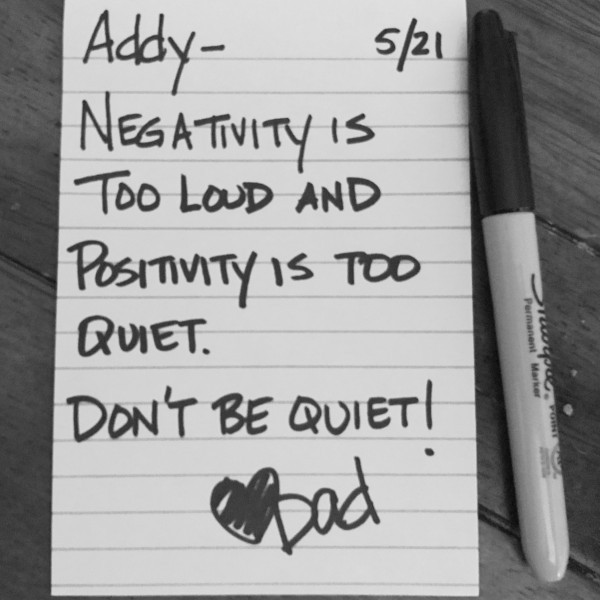 Addy- 5/21
NEGATIVITY IS
TOO LOUD AND
POSITIVITY IS TOO
QUIET.
DON'T BE QUIET!
Dad
Sharpie
Permanent Marker